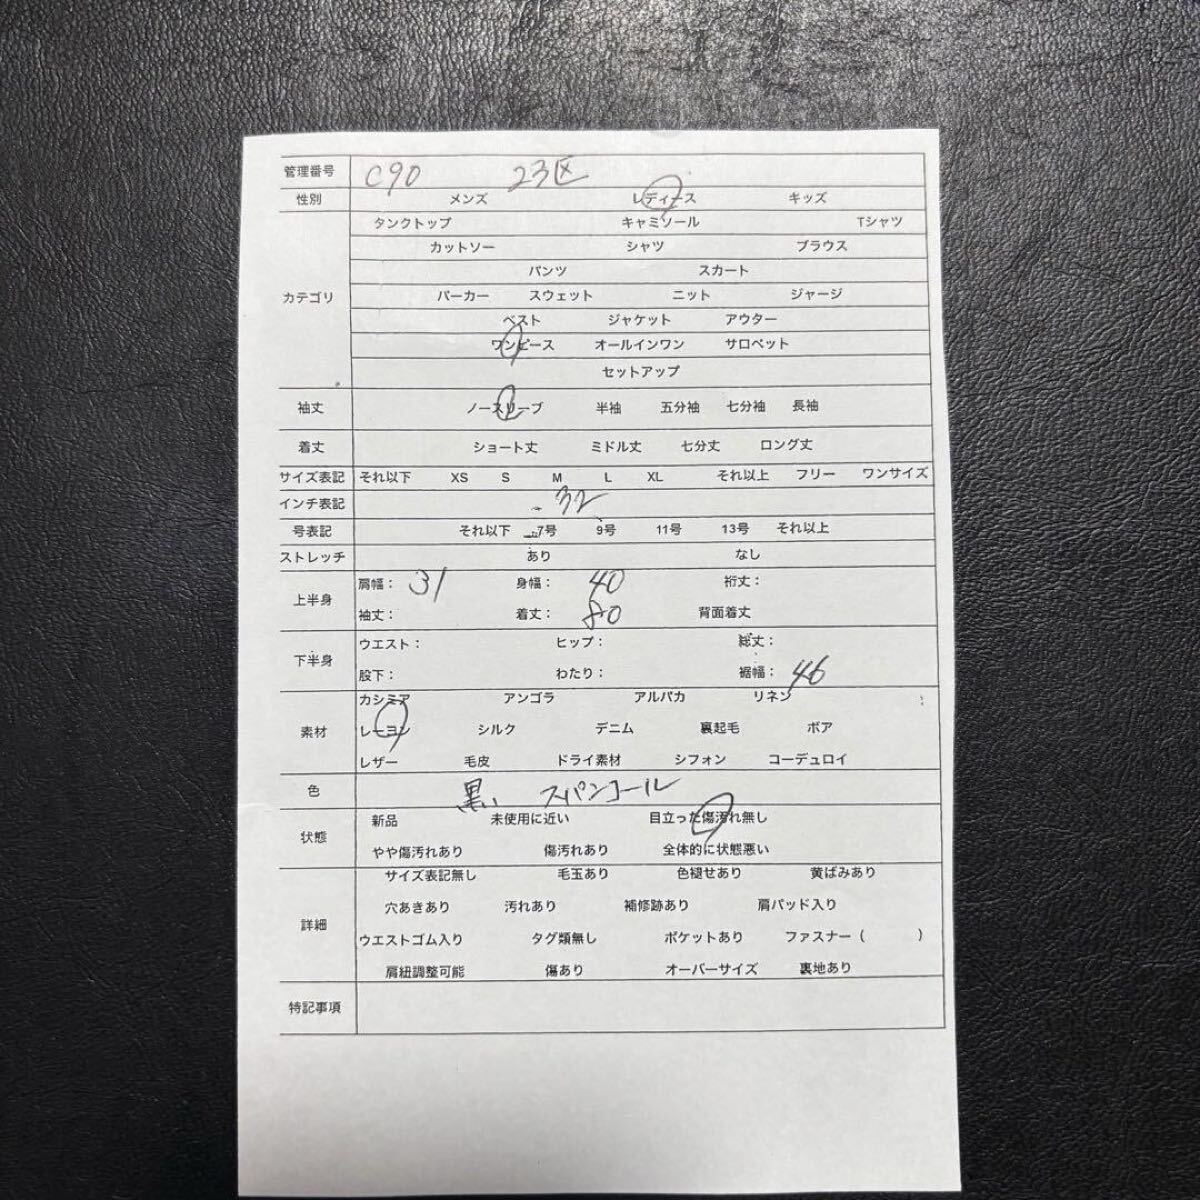 管理番号 C90 23区
性別 メンズ レディース キッズ
タンクトップ キャミソール Tシャツ
カットソー シャツ ブラウス
パンツ スカート
カテゴリ パーカー スウェット ニット ジャージ
ベスト ジャケット アウター
ワンピース オールインワン サロペット
セットアップ
袖丈 ノースリーブ 半袖 五分袖 七分袖 長袖
着丈 ショート丈 ミドル丈 七分丈 ロング丈
サイズ表記 それ以下 XS S M L XL それ以上 フリー ワンサイズ
インチ表記 32
号表記 それ以下 7号 9号 11号 13号 それ以上
ストレッチ あり なし
上半身 肩幅: 31 身幅: 40 裄丈:
袖丈: 着丈: 80 背面着丈
下半身 ウエスト: ヒップ: 総丈:
股下: わたり: 裾幅: 46
カシミア アンゴラ アルパカ リネン
素材 レーヨン シルク デニム 裏起毛 ボア
レザー 毛皮 ドライ素材 シフォン コーデュロイ
色 黒、スパンコール
状態 新品 未使用に近い 目立った傷汚れ無し
やや傷汚れあり 傷汚れあり 全体的に状態悪い
サイズ表記無し 毛玉あり 色褪せあり 黄ばみあり
詳細 穴あきあり 汚れあり 補修跡あり 肩パッド入り
ウエストゴム入り タグ類無し ポケットあり ファスナー( )
肩紐調整可能 傷あり オーバーサイズ 裏地あり
特記事項